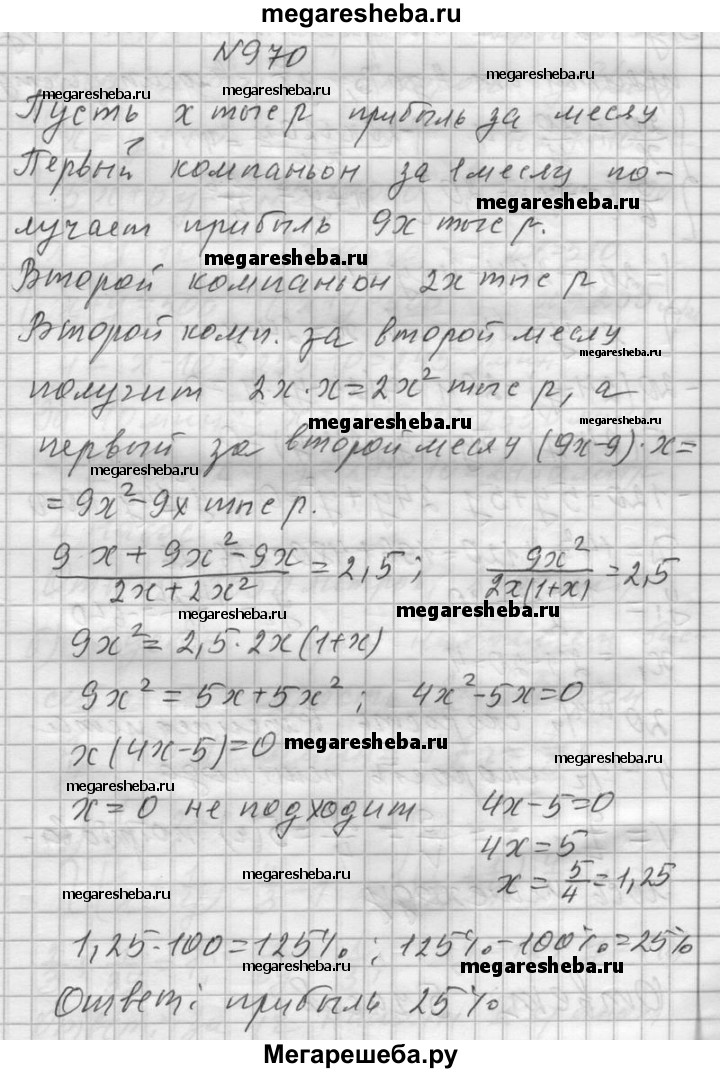 megaresheba.ru
№970
megaresheba.ru
megaresheba.ru
megaresheba.ru
Пусть x тыс р прибыль за месяц
Первый компаньон за 1 месяц по-
megaresheba.ru
лучает прибыль 9x тыс р.
megaresheba.ru
Второй компаньон 2x тыс р
Второй комп. за второй месяц
megaresheba.ru
получит 2x·x=2x² тыс р, а
megaresheba.ru
megaresheba.ru
первый за второй месяц (9x-9)·x=
megaresheba.ru
=9x²-9x тыс р.
(9x+9x²-9x)/(2x+2x²)=2,5; 9x²/(2x(1+x))=2,5
megaresheba.ru
megaresheba.ru
9x²=2,5·2x(1+x)
9x²=5x+5x²; 4x²-5x=0
x(4x-5)=0
megaresheba.ru
megaresheba.ru
megaresheba.ru
x=0 не подходит 4x-5=0
4x=5
megaresheba.ru
x=5/4=1,25
megaresheba.ru
1,25·100=125%; 125%-100%=25%
megaresheba.ru
megaresheba.ru
Ответ: прибыль 25%
Мегарешеба.ру